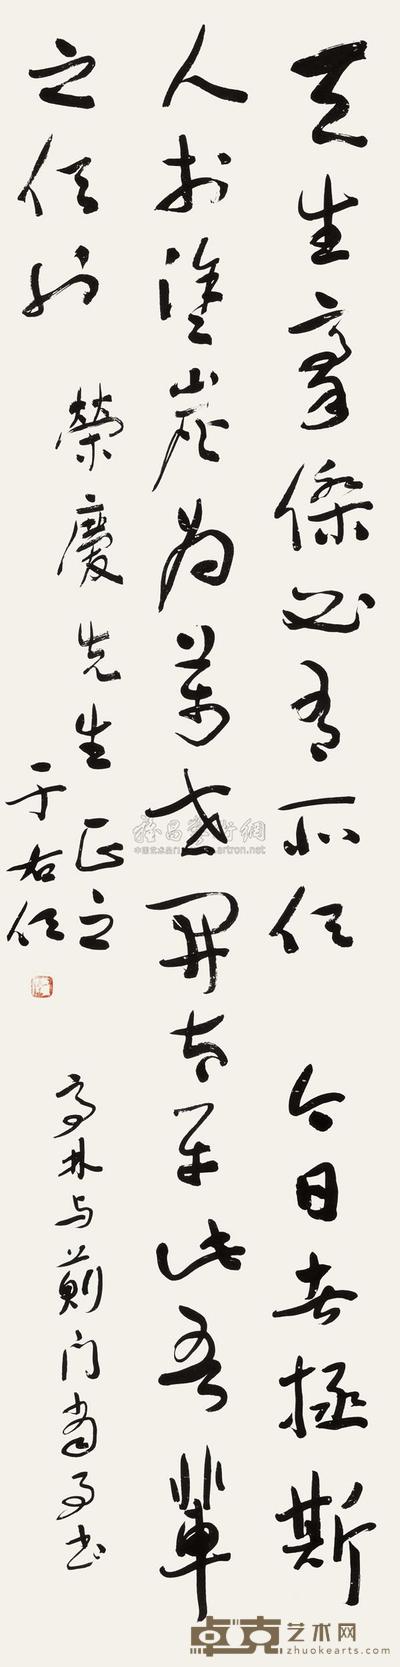 天生豪傑必有所任 今日者拯斯
人於塗炭為萬世開太平此吾輩
之任也
榮慶先生正之
于右任
亭林与薊门當事书
雅昌藝術網
artron.net
卓克艺术网
zhuokearts.com